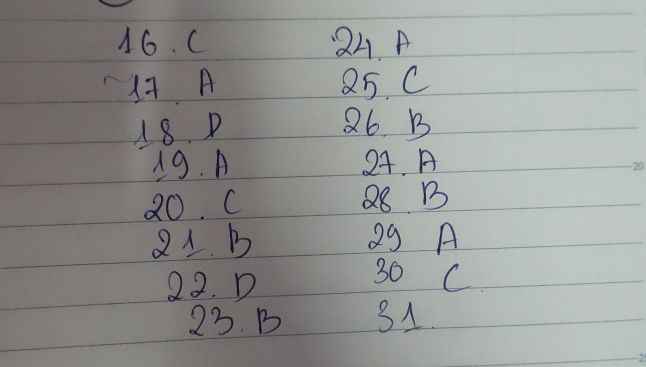 16. C
17. A
18. D
19. A
20. C
21. B
22. D
23. B
24. A
25. C
26. B
27. A
28. B
29 A
30 C
31.
20